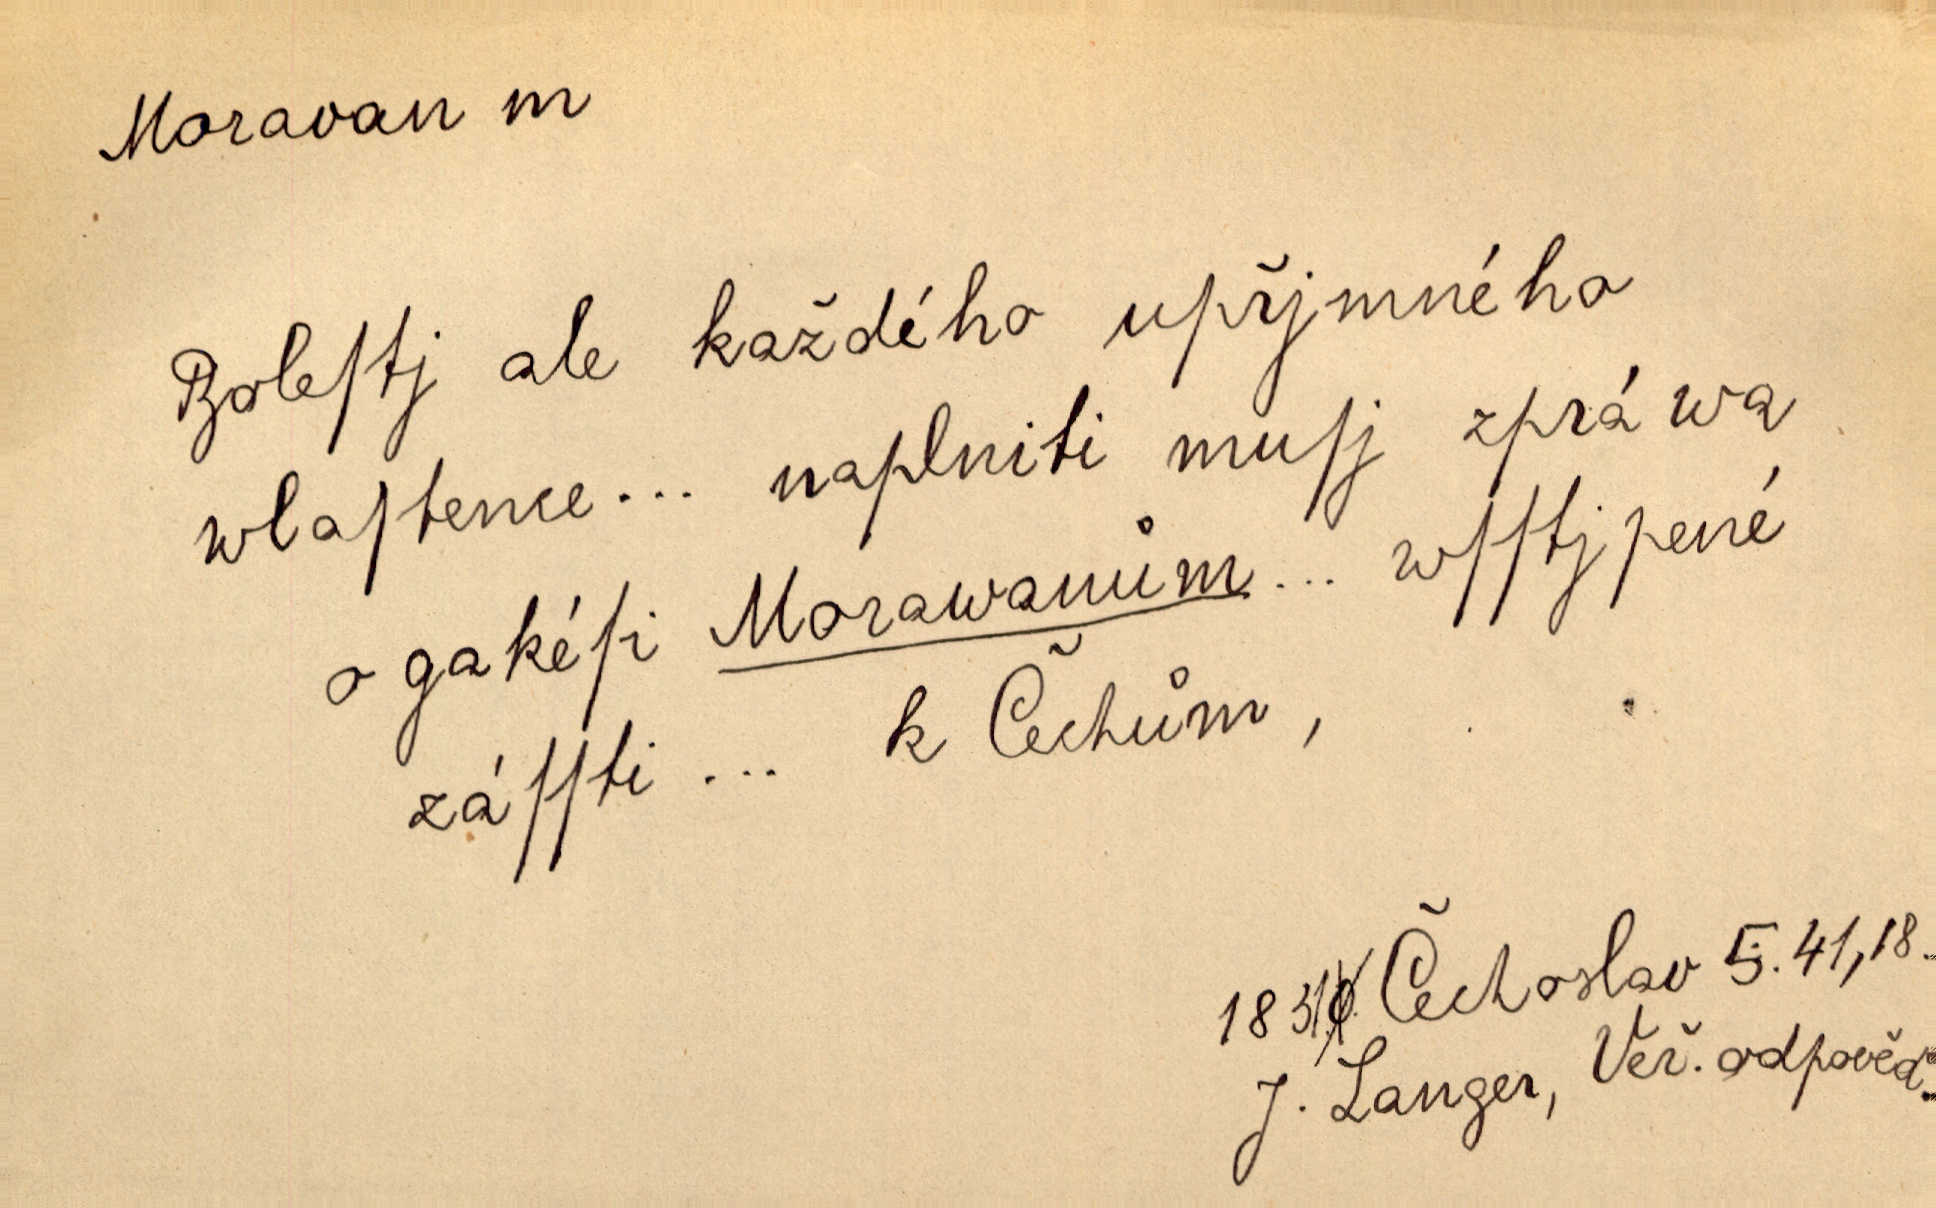 Moravan m
Boleſtj ale každého upřjmného
wlaſtence... naplniti muſj zpráwa
o gakéſi Morawanům... wſſtjpené
záſſti ... k Čechům,
1831 Čechoslav 5.41,18.
J. Langer, Veř. odpověd